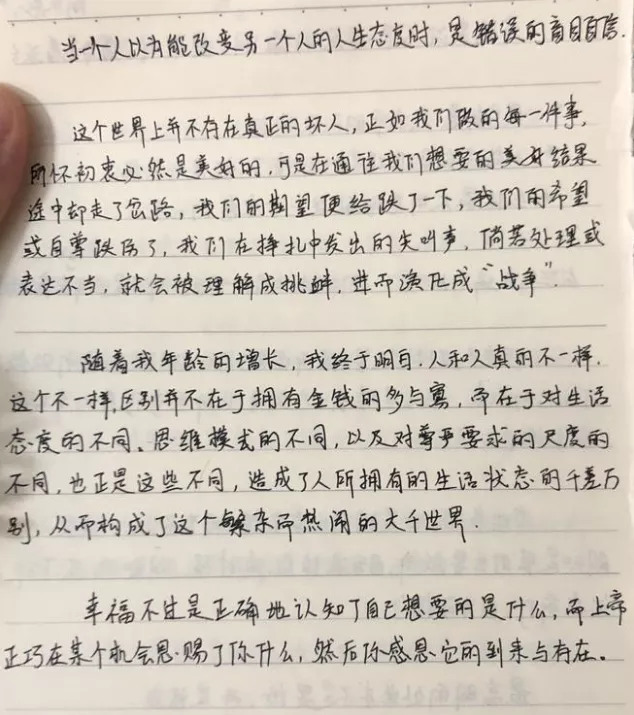 当一个人以为能改变另一个人的人生态度时，是错误的盲目自信.
这个世界上并不存在真正的坏人，正如我们做的每一件事，
所怀初衷必然是美好的，可是在通往我们想要的美好结果
途中却走了岔路，我们的期望便给跌了一下，我们的希望
或自尊跌伤了，我们在挣扎中发出的尖叫声，倘若处理或
表达不当，就会被理解成挑衅，进而演化成“战争”.
随着我年龄的增长，我终于明白，人和人真的不一样，
这个不一样，区别并不在于拥有金钱的多与寡，而在于对生活
态度的不同、思维模式的不同，以及对尊严要求的尺度的
不同，也正是这些不同，造成了人所拥有的生活状态的千差万
别，从而构成了这个繁杂而热闹的大千世界.
幸福不过是正确地认知了自己想要的是什么，而上帝
正巧在某个机会恩赐了你什么，然后你感恩它的到来与存在。